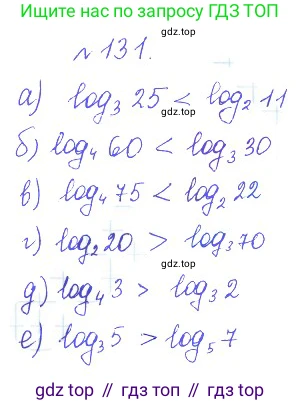 Ищите нас по запросу ГДЗ ТОП
gdz.top
№ 131.
gdz.top
а) log₃ 25 < log₂ 11
б) log₄ 60 < log₃ 30
в) log₄ 75 < log₂ 22
г) log₂ 20 > log₃ 70
gdz.top
д) log₄ 3 > log₃ 2
е) log₃ 5 > log₅ 7
gdz top // гдз топ // gdz.top